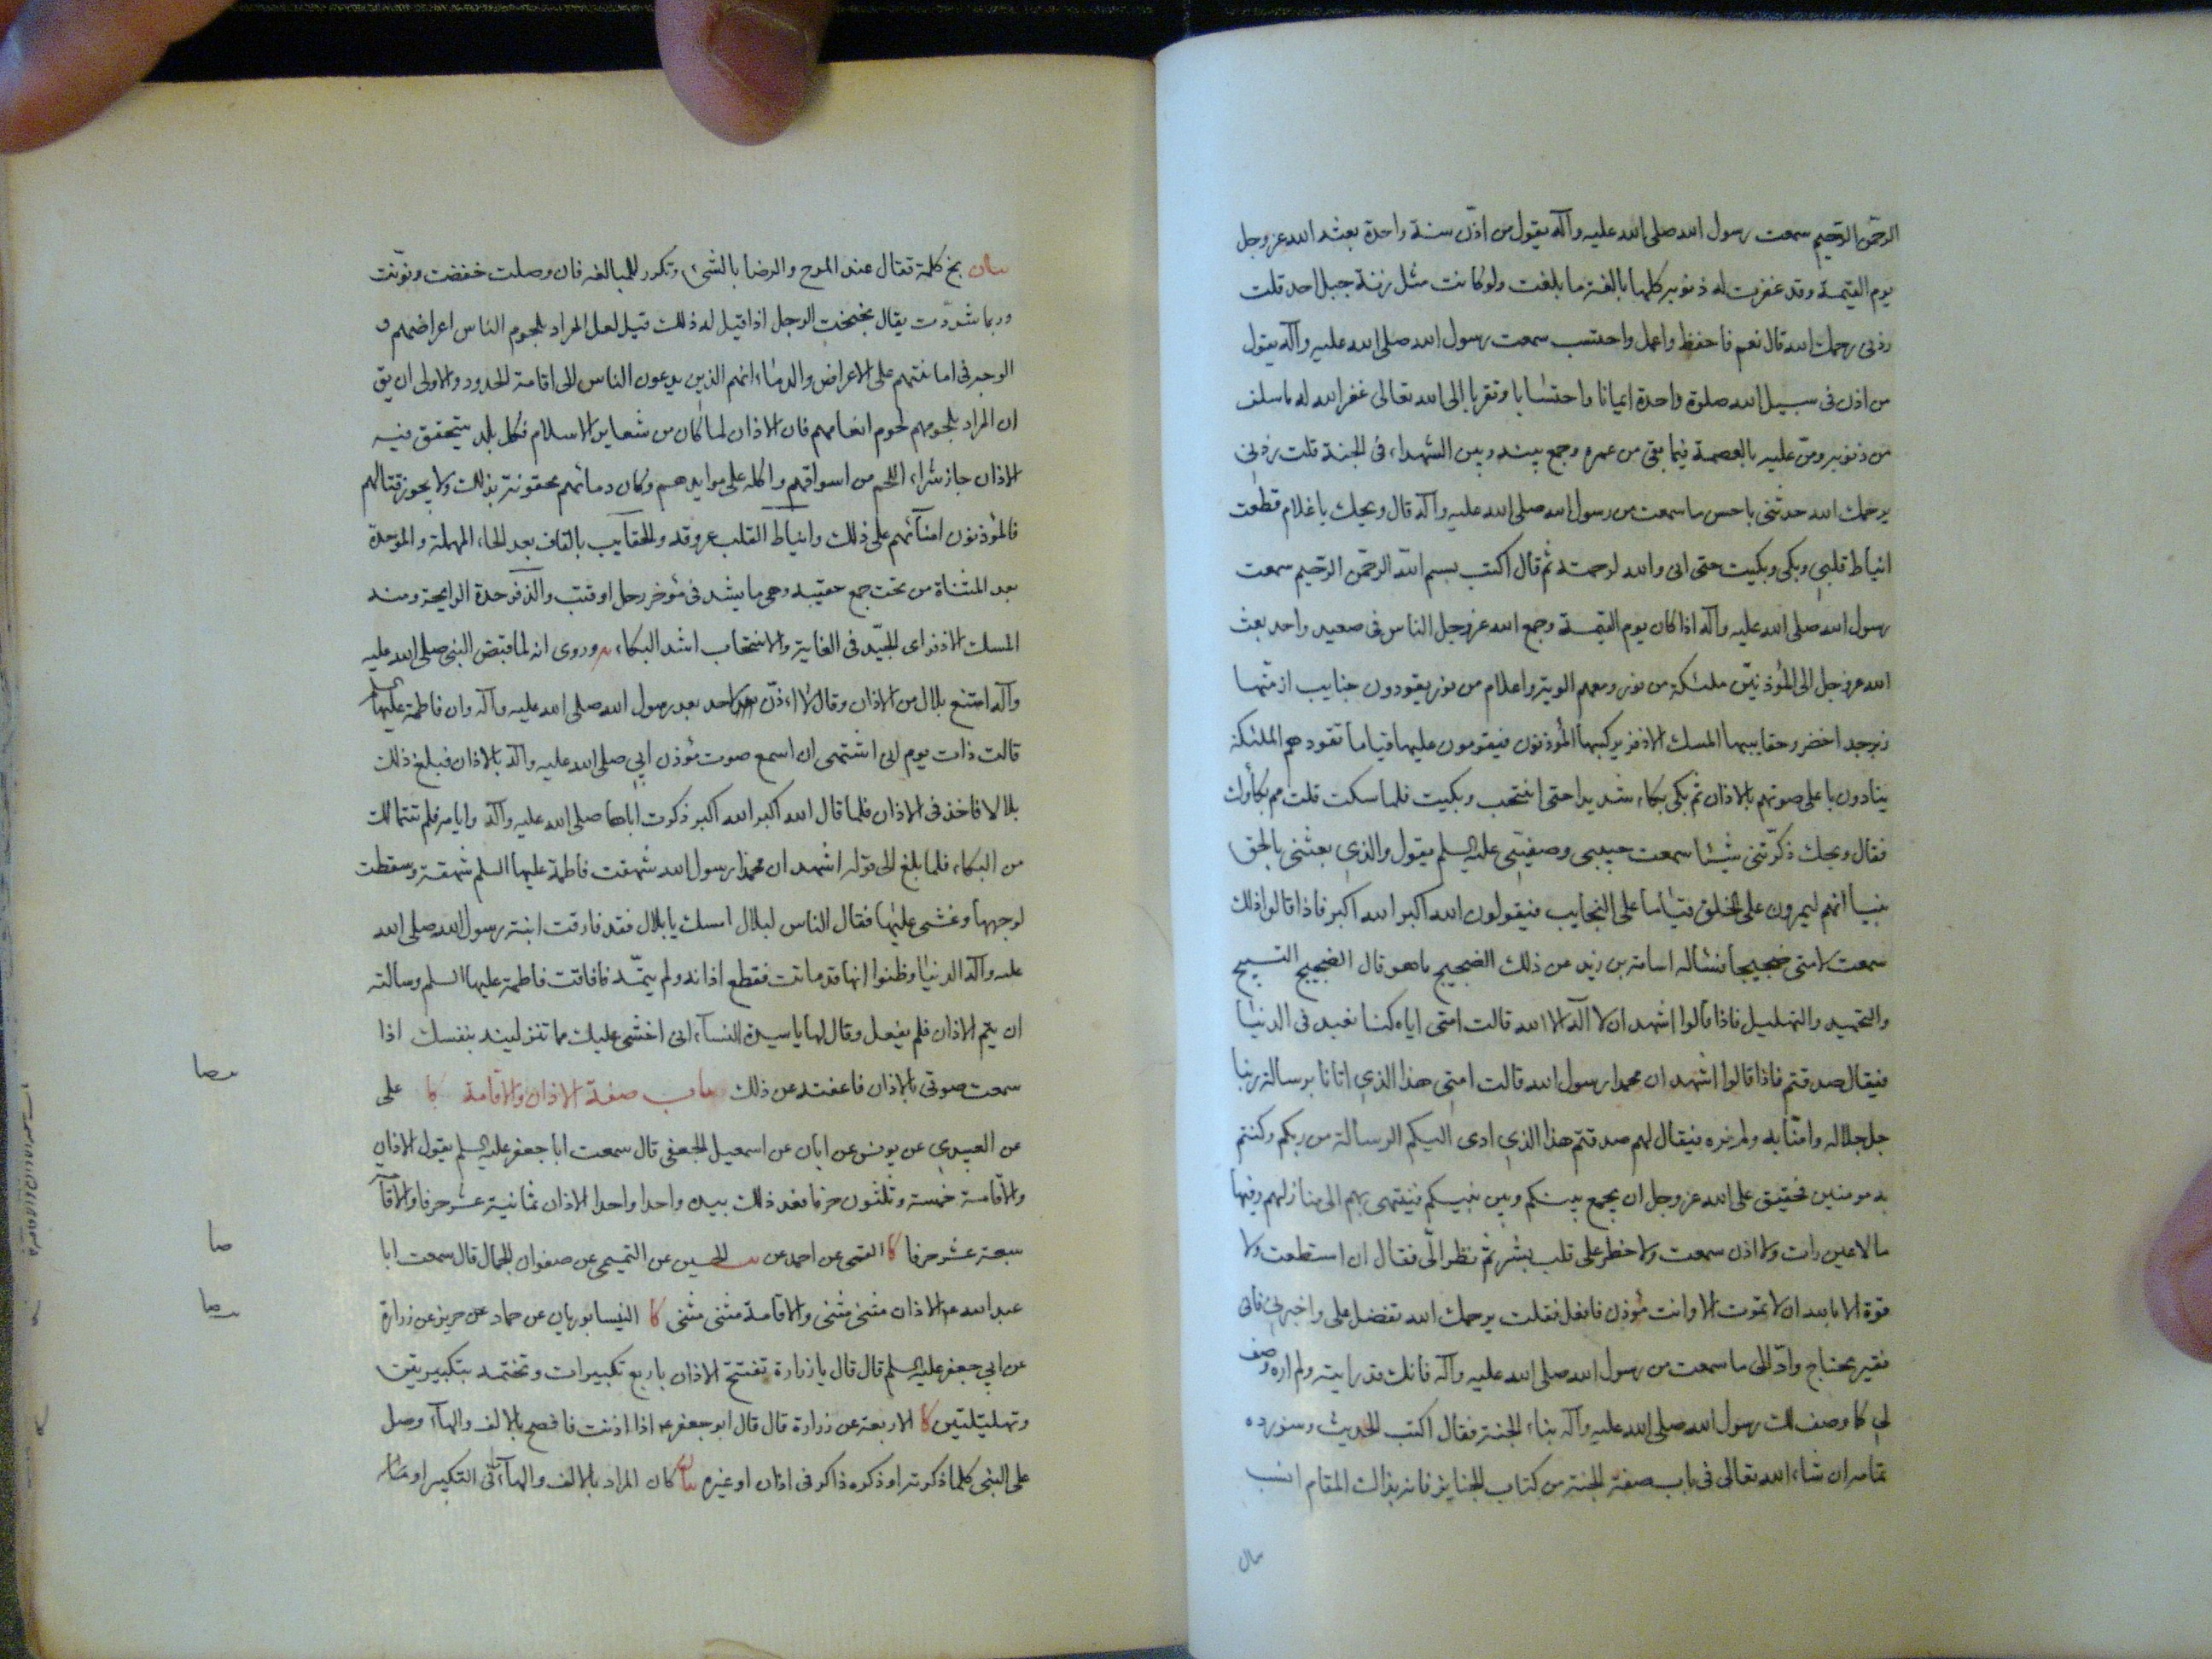 الرحمن الرحيم سمعت رسول الله صلى الله عليه وآله يقول من اذن سنة واحدة بعثه الله عز وجل
يوم القيمة وقد غفرت له ذنوبه كلها بالغة ما بلغت ولو كانت مثل زنة جبل احد قلت
زدني رحمك الله قال نعم فاحفظ واعمل واحتسب سمعت رسول الله صلى الله عليه وآله يقول
من اذن في سبيل الله صلوة واحدة ايمانا واحتسابا وتقربا الى الله تعالى غفر الله له ما سلف
من ذنوبه ومن عليه بالعصمة فيما بقى من عمره وجمع بينه وبين الشهداء في الجنة قلت زدني
يرحمك الله حدثني باحسن ما سمعت من رسول الله صلى الله عليه وآله قال ويحك يا غلام قطعت
انياط قلبي وبكى وبكيت حتى اني والله لرحمته ثم قال اكتب بسم الله الرحمن الرحيم سمعت
رسول الله صلى الله عليه وآله اذا كان يوم القيمة وجمع الله عز وجل الناس في صعيد واحد بعث
الله عز وجل الى المؤذنين ملئكة من نور ومعهم الوية واعلام من نور يقودون جنايب ازمتها
زبرجد اخضر وحقايبها المسك الاذفر يركبها المؤذنون فيقومون عليها قياما تقودهم الملئكة
ينادون باعلى صوتهم بالاذان ثم بكى بكاء شديدا حتى انتحب وبكيت فلما سكت قلت مم بكاؤك
فقال ويحك ذكرتني شيئا سمعت حبيبي وصفيي عليه السلم يقول والذي بعثني بالحق
نبيا انهم ليمرون على الخلق قياما على النجايب فيقولون الله اكبر الله اكبر فاذا قالوا ذلك
سمعت لامتي ضجيجا فسئاله اسامة بن زيد عن ذلك الضجيج ما هو قال الضجيج التسبيح
والتحميد والتهليل فاذا قالوا اشهد ان لا اله الا الله قالت امتي اياه كنا نعبد في الدنيا
فيقال صدقتم فاذا قالوا اشهد ان محمدا رسول الله قالت امتي هذا الذي اتانا برسالة ربنا
جل جلاله وامنا به ولم نره فيقال لهم صدقتم هذا الذي ادى اليكم الرسالة من ربكم وكنتم
به مومنين فحقيق على الله عز وجل ان يجمع بينكم وبين نبيكم فينتهى بهم الى منازلهم وفيها
ما لا عين رات ولا اذن سمعت ولا خطر على قلب بشر ثم نظر الي فقال ان استطعت ولا
قوة الا بالله ان لا تموت الا وانت مؤذن فافعل فقلت يرحمك الله تفضل علي واخبرني فاني
فقير محتاج وادّ الى ما سمعت من رسول الله صلى الله عليه وآله فانك قد رايته ولم اره وصف
لي كما وصف لك رسول الله صلى الله عليه وآله بناء الجنة فقال اكتب الحديث وسنورده
تمامه ان شاء الله تعالى في باب صفة الجنة من كتاب الجنايز فانه بذالك المقام انسب
بيان بخ كلمة تقال عند المدح والرضا بالشيء وتكرر للمبالغه فان وصلت خفضت ونونت
وربما شددت يقال بخبخت الرجل اذا قيل له ذلك قيل لعل المراد بلحوم الناس اعراضهم و
الوجه في امانتهم على الاعراض والدماء انهم الذين يدعون الناس الى اقامة الحدود والاولى ان يق
ان المراد بلحومهم لحوم انعامهم فان الاذان لما كان من شعاير الاسلام فكل بلد يتحقق فيه
الاذان جاز شراء اللحم من اسواقهم واكله على موايدهم وكان دمائهم محقونة بذلك ولا يجوز قتالهم
فالمؤذنون امنائهم على ذلك وانياط القلب عروقه والحقايب بالقاف بعد الحاء المهملة والموحدة
بعد المثناة من تحت جمع حقيبه وهي ما يشد في مؤخر رحل او قتب والذفر حدة الرايحة ومنه
المسك الاذفر اى الجيد في الغاية والانتحاب اشد البكاء يه وروى انه لما قبض النبي صلى الله عليه
وآله امتنع بلال من الاذان وقال لا اؤذن لاحد بعد رسول الله صلى الله عليه وآله وان فاطمة عليها السلم
قالت ذات يوم اني اشتهى ان اسمع صوت مؤذن ابي صلى الله عليه وآله بالاذان فبلغ ذلك
بلالا فاخذ في الاذان فلما قال الله اكبر الله اكبر ذكرت اباها صلى الله عليه وآله وايامه فلم تتمالك
من البكاء فلما بلغ الى قوله اشهد ان محمدا رسول الله شهقت فاطمة عليها السلم شهقة وسقطت
لوجهها وغشى عليها فقال الناس لبلال امسك يا بلال فقد فارقت ابنة رسول الله صلى الله
عليه وآله الدنيا وظنوا انها قد ماتت فقطع اذانه ولم يتمه فافاقت فاطمة عليها السلم وسالته
ان يتم الاذان فلم يفعل وقال لها يا سيدة النساء اني اخشى عليك مما تنزلينه بنفسك اذا
سمعت صوتي بالاذان فاعفته عن ذلك باب صفة الاذان والاقامة كا على
عن العبيدي عن يونس عن ابان عن اسمعيل الجعفي قال سمعت ابا جعفر عليه السلم يقول الاذان
والاقامة خمسة وثلثون حرفا فعد ذلك بيده واحدا واحدا الاذان ثمانية عشر حرفا والاقامة
سبعة عشر حرفا كا القمى عن احمد عن يب الحسين عن التميمي عن صفوان الجمال قال سمعت ابا
عبد الله ع الاذان مثنى مثنى والاقامة مثنى مثنى كا النيسابوريان عن حماد عن حريز عن زرارة
عن ابي جعفر عليه السلم قال قال يا زرارة تفتتح الاذان باربع تكبيرات وتختمه بتكبيرتين
وتهليلتين كا الاربعة عن زرارة قال قال ابو جعفر ع اذا اذنت فافصح بالالف والهاء وصل
على النبي كلما ذكرته او ذكره ذاكر في اذان او غيره بيان كان المراد بالالف والهاء في التكبير او